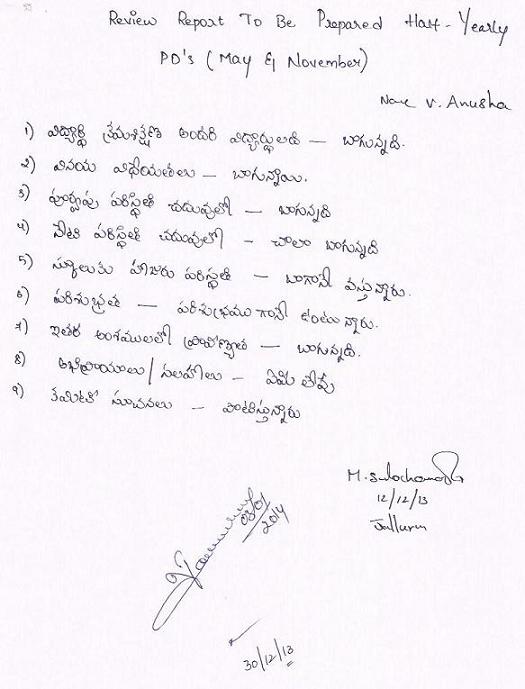 Review Report To Be Prepared Half-Yearly
PD's (May & November)
Name V. Anusha
1) విద్యార్థి క్రమశిక్షణ అందరి విద్యార్థులతో — బాగున్నది.
2) వినయ విధేయతలు — బాగున్నాయి.
3) పూర్వపు పరిస్థితి చదువులో — బాగున్నది
4) నేటి పరిస్థితి చదువులో - చాలా బాగున్నది
5) స్కూలుకు హాజరు పరిస్థితి — బాగానే వస్తున్నారు.
6) పరిశుభ్రత — పరిశుభ్రముగానే ఉంటున్నారు.
7) ఇతర అంశములలో ప్రావీణ్యత — బాగున్నది.
8) అభిప్రాయాలు/సలహాలు - ఏమి లేవు
9) కమిటీ సూచనలు — పాటిస్తున్నారు
M. Sulochana
12/12/13
Jalluru
03/01
2014
30/12/13